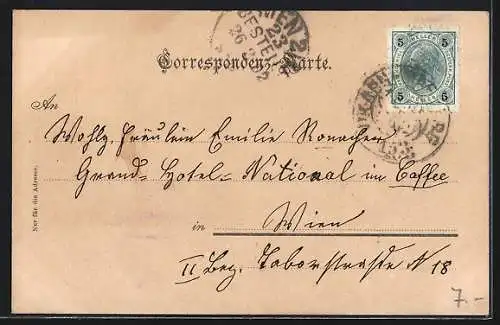 WIEN 2
BESTELLT
Correspondenz-Karte.
5 5
5 5
An
Wohlg. Fräulein Emilie Ronacher
Grand-Hotel-National im Caffee
in Wien
II Bez. Taborstraße N 18
Nur für die Adresse.
7.-